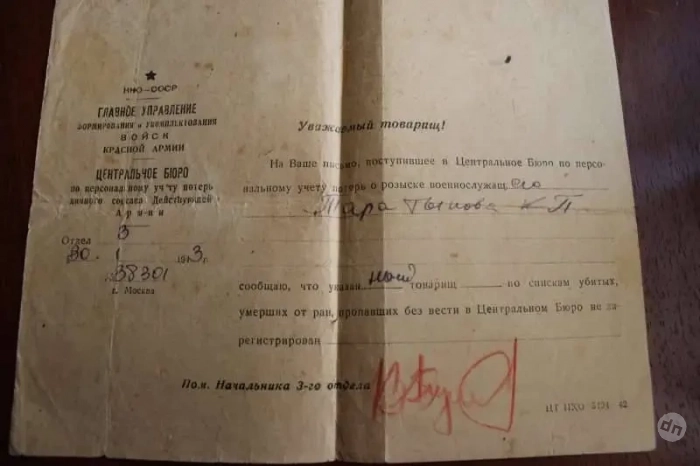 НКО—СССР
ГЛАВНОЕ УПРАВЛЕНИЕ
ФОРМИРОВАНИЯ и УКОМПЛЕКТОВАНИЯ
ВОЙСК
КРАСНОЙ АРМИИ
ЦЕНТРАЛЬНОЕ БЮРО
по персональному учету потерь
личного состава Действующей
Армии
Отдел 3
30. 1 1943 г.
38301
г. Москва
Уважаемый товарищ!
На Ваше письмо, поступившее в Центральное Бюро по персо-
нальному учету потерь о розыске военнослужащ его
К П
сообщаю, что указан ный товарищ по спискам убитых,
умерших от ран, пропавших без вести в Центральном Бюро не за-
регистрирован
Пом. Начальника 3-го отдела
42
dn